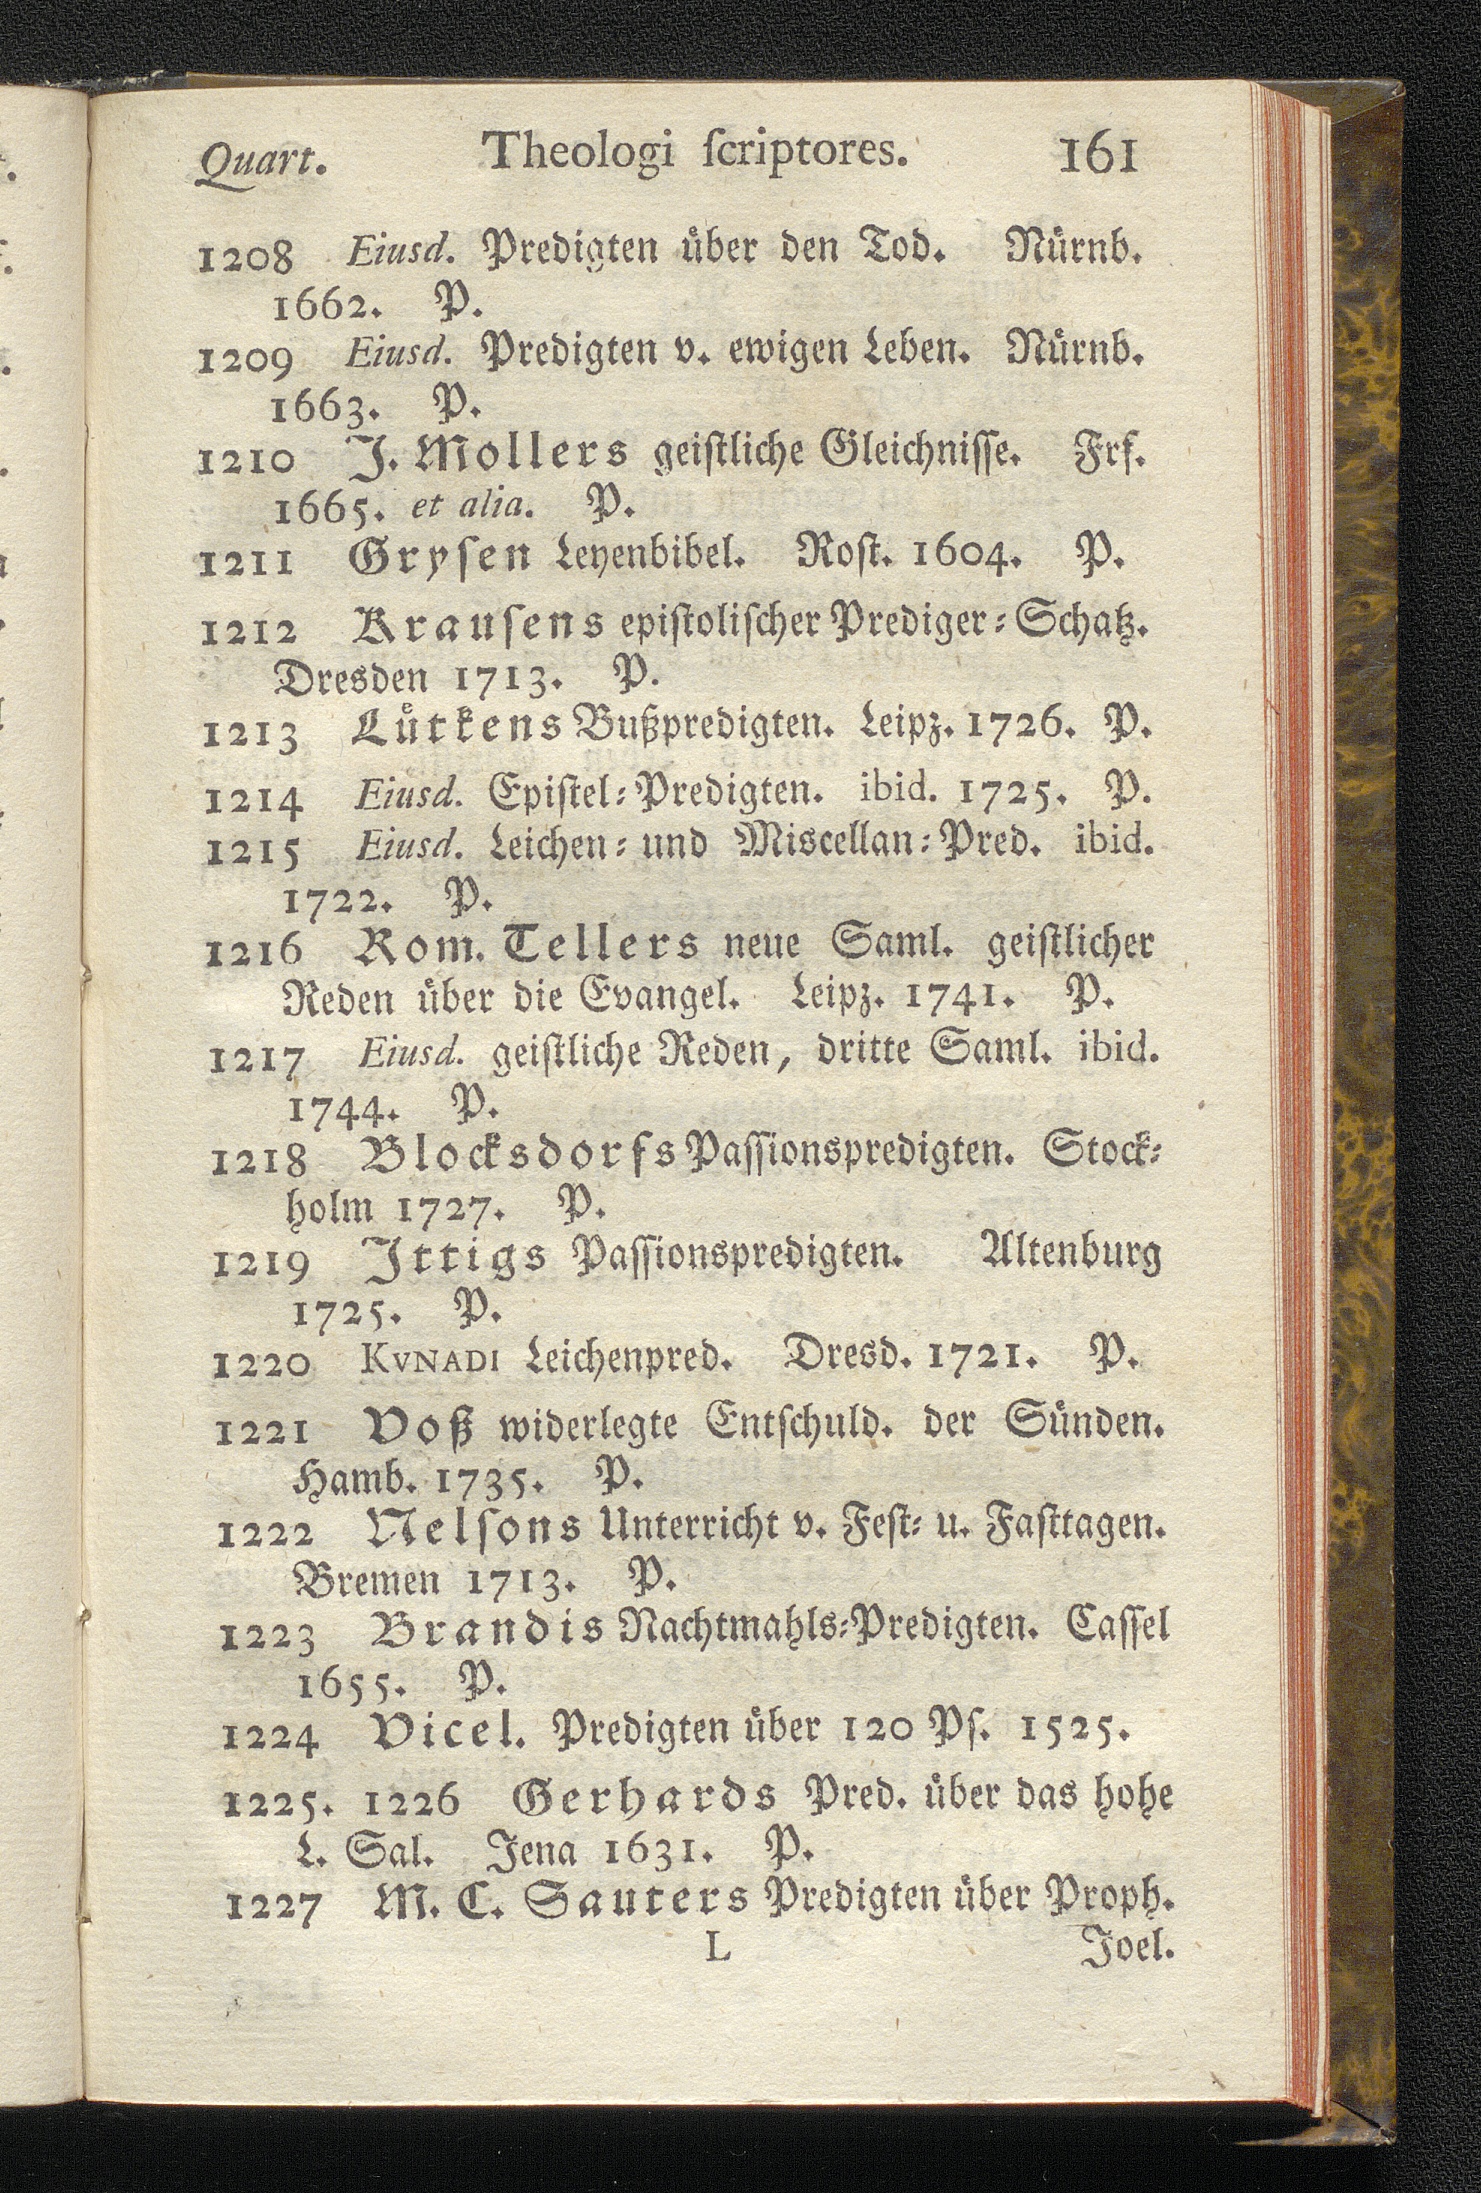 Quart. Theologi ſcriptores. 161
1208 Eiusd. Predigten uͤber den Tod. Nuͤrnb.
1662. P.
1209 Eiusd. Predigten v. ewigen Leben. Nuͤrnb.
1663. P.
1210 J. Mollers geiſtliche Gleichniſſe. Frf.
1665. et alia. P.
1211 Gryſen Leyenbibel. Roſt. 1604. P.
1212 Krauſens epiſtoliſcher Prediger⸗Schatz.
Dresden 1713. P.
1213 Luͤtkens Bußpredigten. Leipz. 1726. P.
1214 Eiusd. Epiſtel⸗Predigten. ibid. 1725. P.
1215 Eiusd. Leichen⸗ und Miscellan⸗Pred. ibid.
1722. P.
1216 Rom. Tellers neue Saml. geiſtlicher
Reden uͤber die Evangel. Leipz. 1741. P.
1217 Eiusd. geiſtliche Reden, dritte Saml. ibid.
1744. P.
1218 Blocksdorfs Paſſionspredigten. Stock⸗
holm 1727. P.
1219 Ittigs Paſſionspredigten. Altenburg
1725. P.
1220 KVNADI Leichenpred. Dresd. 1721. P.
1221 Voß widerlegte Entſchuld. der Suͤnden.
Hamb. 1735. P.
1222 Nelſons Unterricht v. Feſt⸗ u. Faſttagen.
Bremen 1713. P.
1223 Brandis Nachtmahls⸗Predigten. Caſſel
1655. P.
1224 Vicel. Predigten uͤber 120 Pſ. 1525.
1225. 1226 Gerhards Pred. uͤber das hohe
L. Sal. Jena 1631. P.
1227 M. C. Sauters Predigten uͤber Proph.
L Joel.